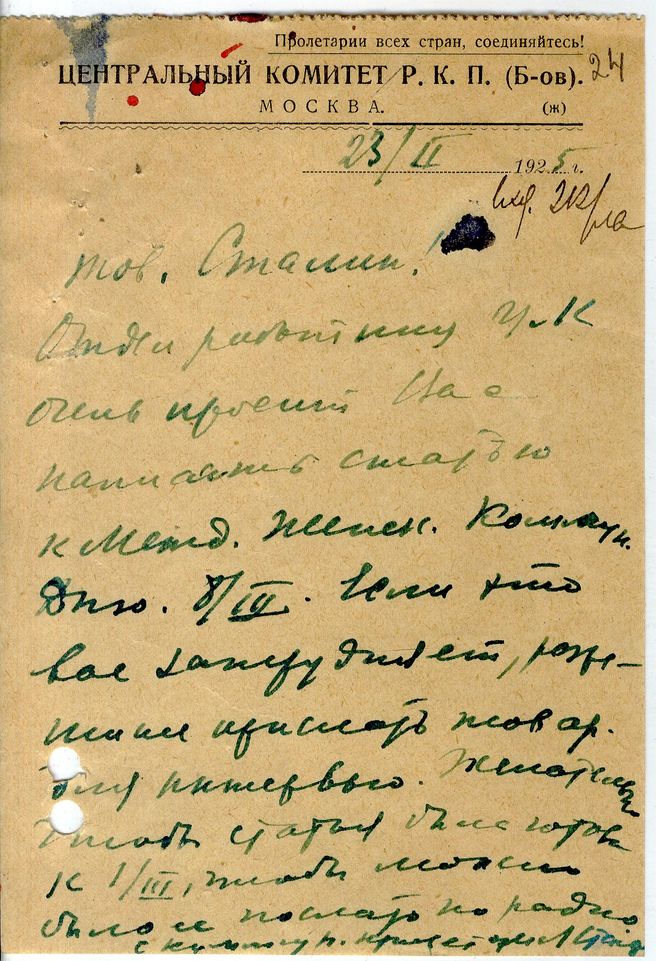 Пролетарии всех стран, соединяйтесь!
24
ЦЕНТРАЛЬНЫЙ КОМИТЕТ Р. К. П. (Б-ов).
МОСКВА.
(ж)
23/II 1925 г.
тов. Сталин!
Отдел работниц ЦК
очень просит Вас
написать статью
к Межд. Женск. Коммун.
Дню. 8/III. Если это
вас затрудняет, разре-
шите прислать товар.
для интервью. Желательно
чтобы статья была готова
к 1/III, чтобы можно
было ее послать по радио
с коммун. приветом